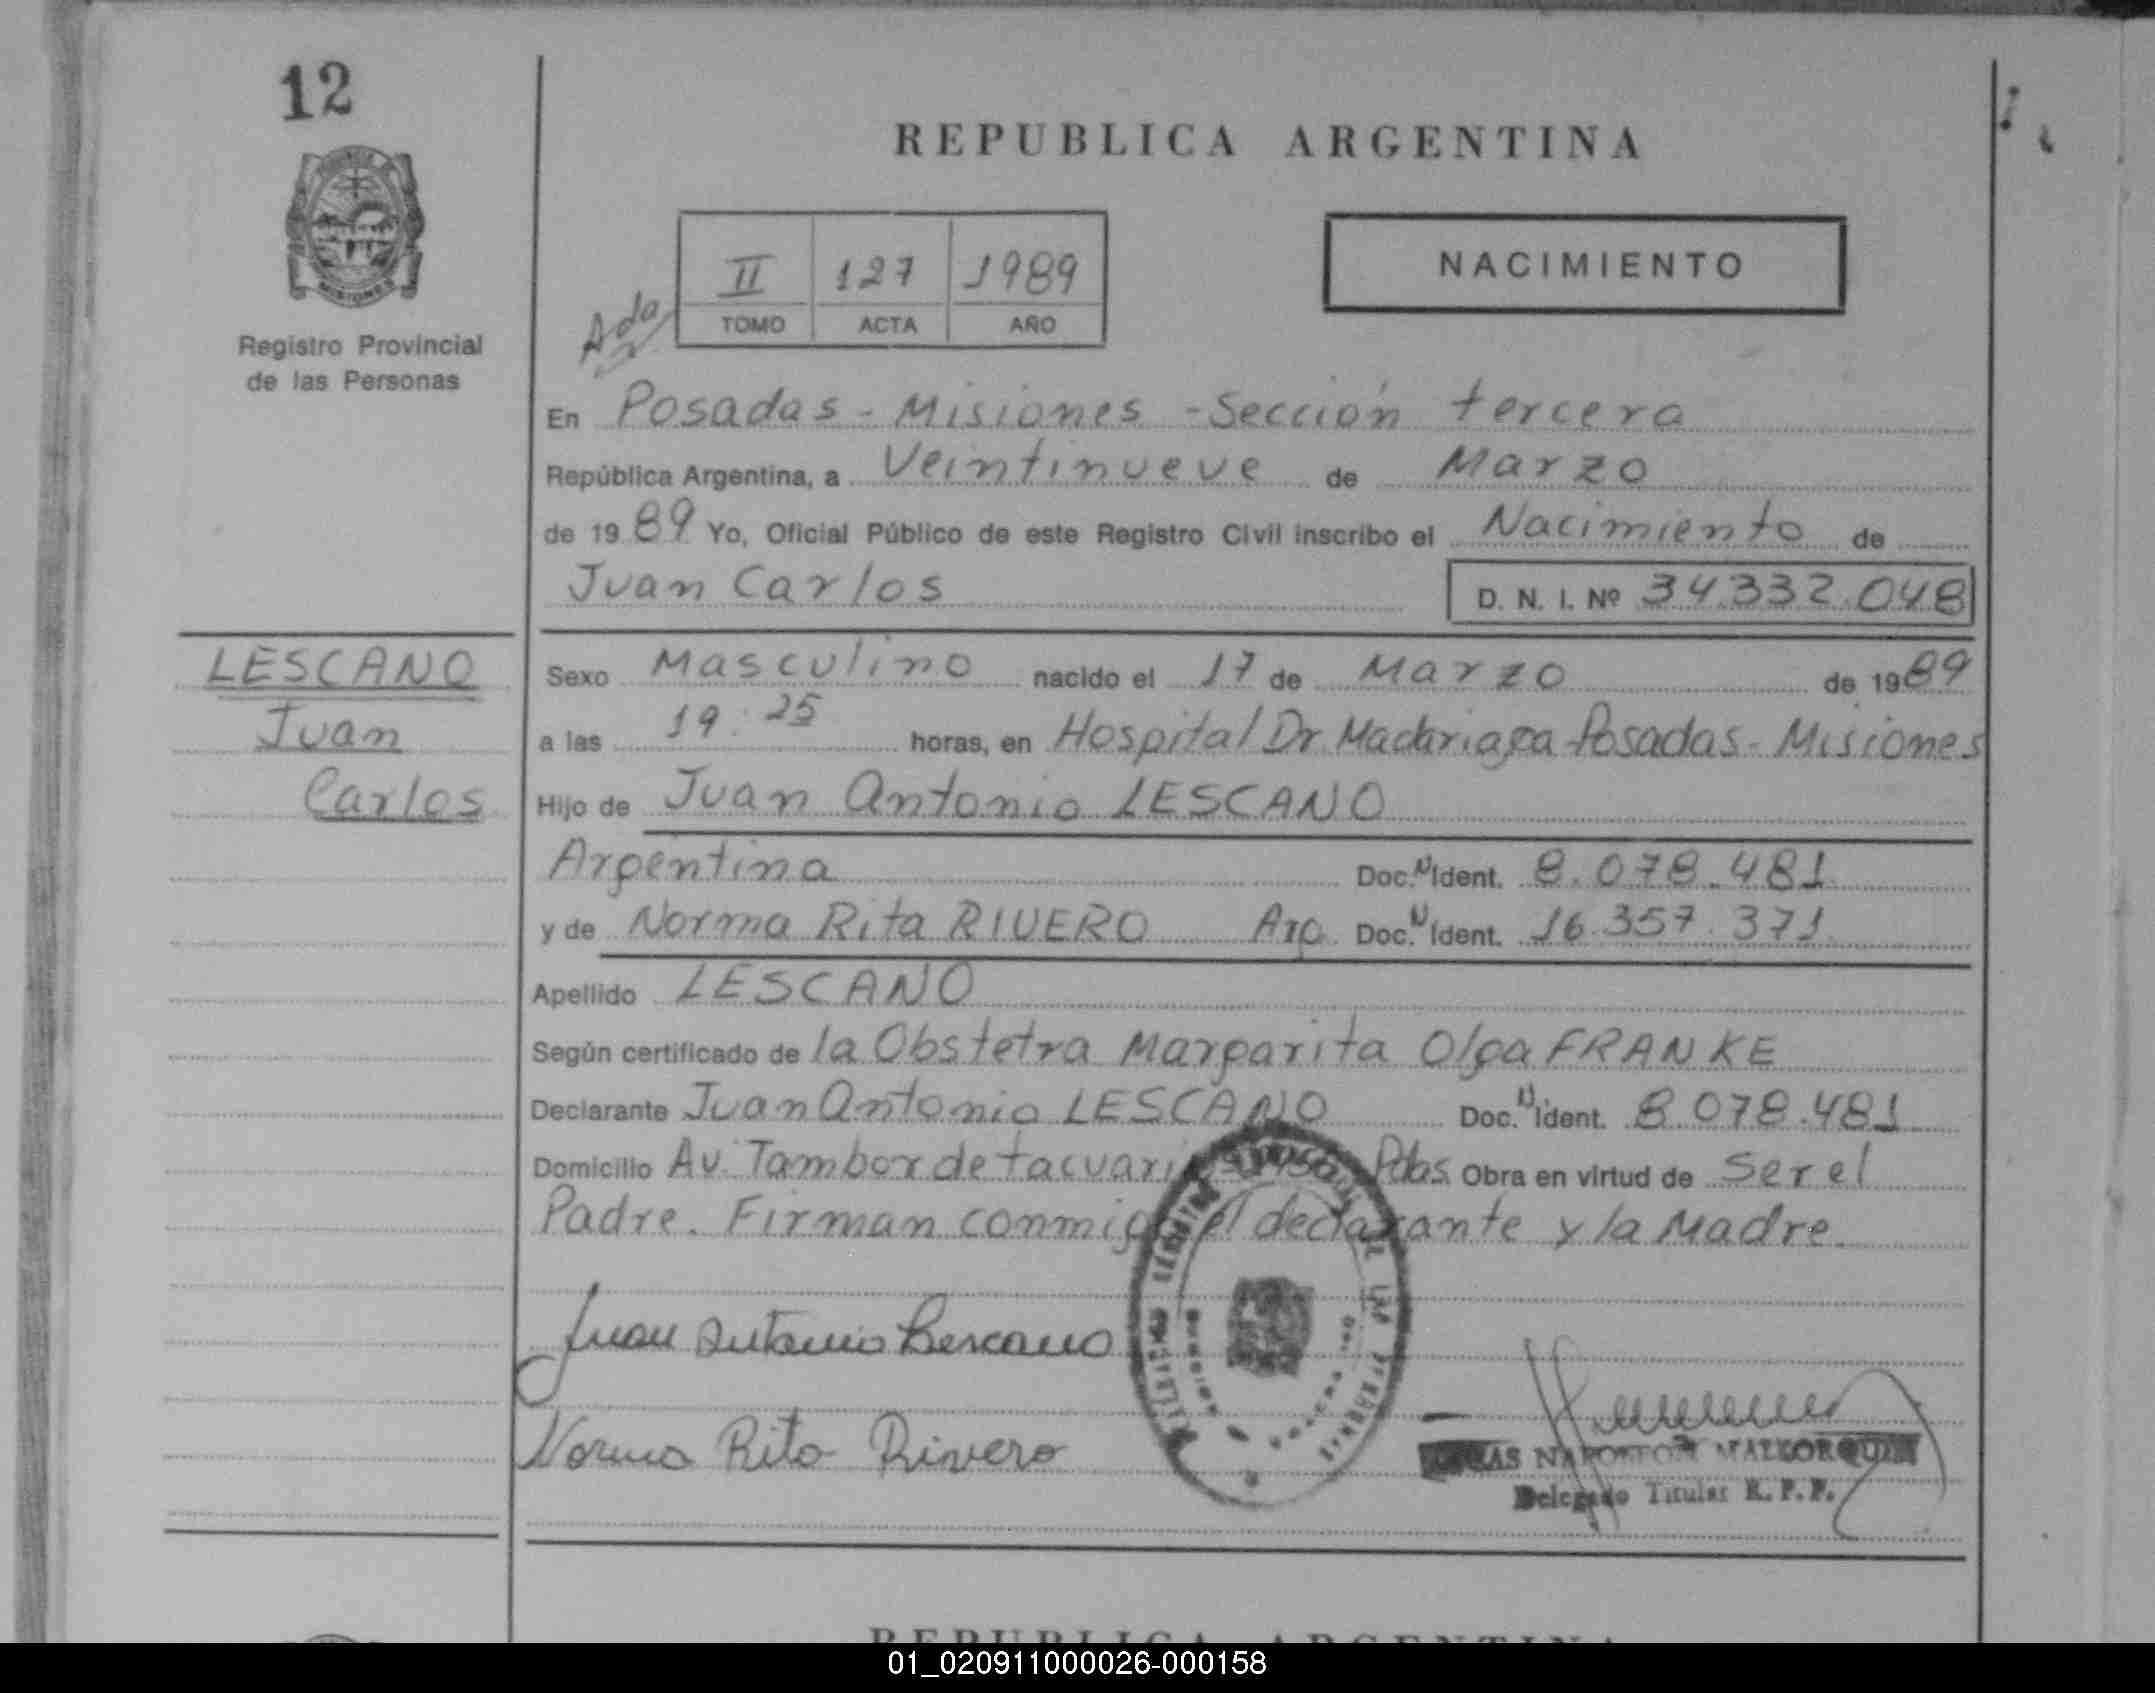 12
REPUBLICA ARGENTINA
II 127 1989
TOMO ACTA AÑO
NACIMIENTO
Registro Provincial
de las Personas
En Posadas - Misiones - Sección tercera
República Argentina, a Veintinueve de Marzo
de 1989 Yo, Oficial Público de este Registro Civil inscribo el Nacimiento de
Juan Carlos D. N. I. Nº 34.332.048
LESCANO
Juan
Carlos
Sexo Masculino nacido el 17 de Marzo de 1989
a las 19:25 horas, en Hospital Dr. Madariaga Posadas - Misiones
Hijo de Juan Antonio LESCANO
Argentina Doc. N Ident. 8.078.481
y de Norma Rita RIVERO Arg. Doc. N Ident. 16.357.371
Apellido LESCANO
Según certificado de la Obstetra Margarita Olga FRANKE
Declarante Juan Antonio LESCANO Doc. N Ident. 8.078.481
Domicilio Av. Tambor de tacuari Pdas. Obra en virtud de ser el
Padre. Firman conmigo el declarante y la Madre.
Juan Antonio Lescano
Norma Rita Rivero
Delegado Titular R. P. P.
REPUBLICA ARGENTINA
01_020911000026-000158